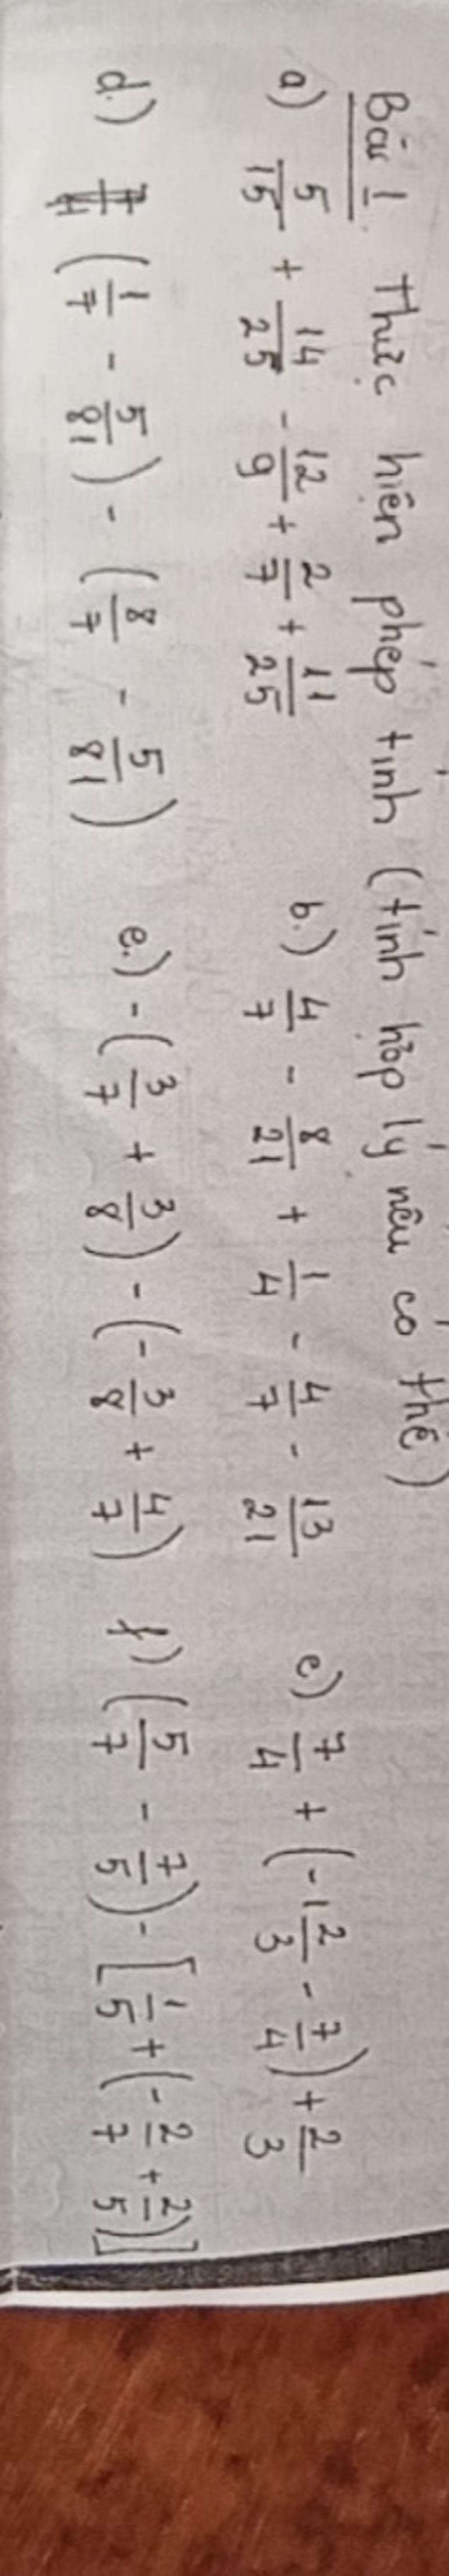 Bài 1. Thực hiện phép tính (tính hợp lý nếu có thể)
a) 5/15 + 14/25 - 12/9 + 2/7 + 11/25 b.) 4/7 - 8/21 + 1/4 - 4/7 - 13/21 c) 7/4 + (-1 2/3 - 7/4) + 2/3
d.) (1/7 - 5/81) - (8/7 - 5/81) e.) -(3/7 + 3/8) - (-3/8 + 4/7) f) (5/7 - 7/5) - [1/5 + (-2/7 + 2/5)]